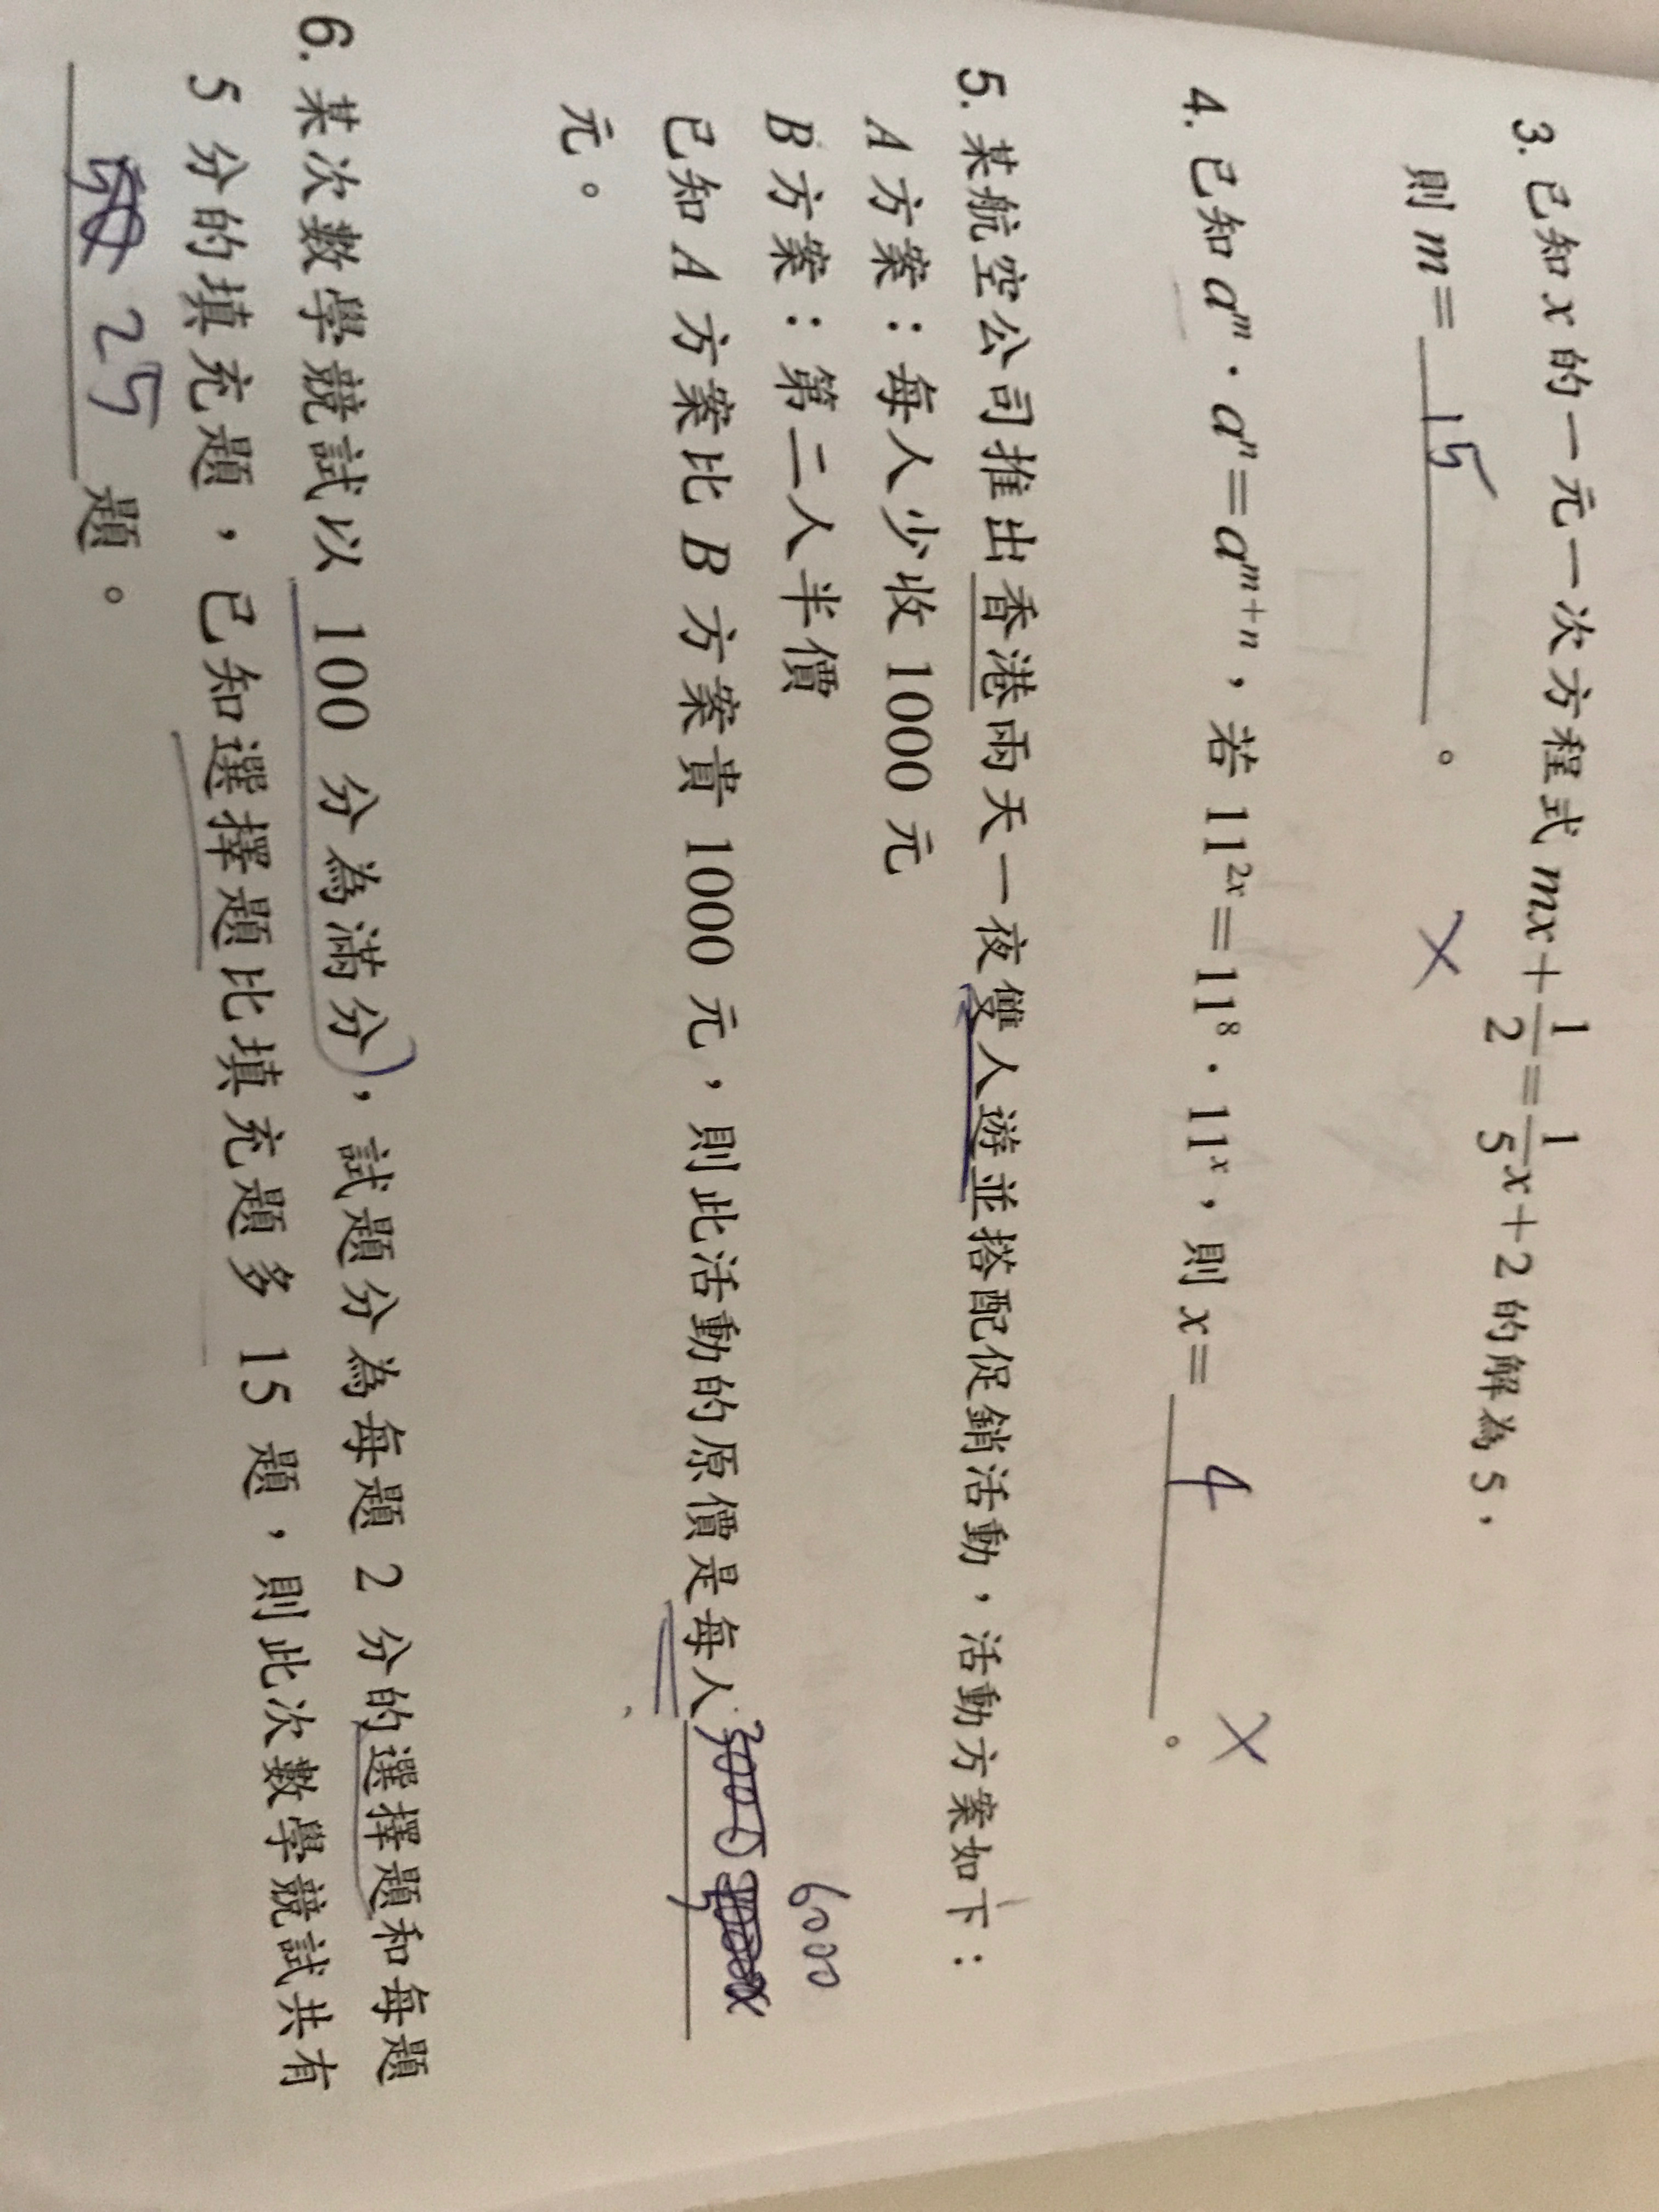 3. 已知 x 的一元一次方程式 mx+1/2=1/5x+2 的解為 5，
則 m= 15 。 ×
4. 已知 a^m · a^n=a^(m+n)，若 11^(2x)=11^8 · 11^x，則 x= 4 。 ×
5. 某航空公司推出香港兩天一夜雙人遊並搭配促銷活動，活動方案如下：
A 方案：每人少收 1000 元
B 方案：第二人半價
6000
已知 A 方案比 B 方案貴 1000 元，則此活動的原價是每人
元。
6. 某次數學競試以 100 分為滿分，試題分為每題 2 分的選擇題和每題
5 分的填充題，已知選擇題比填充題多 15 題，則此次數學競試共有
25 題。